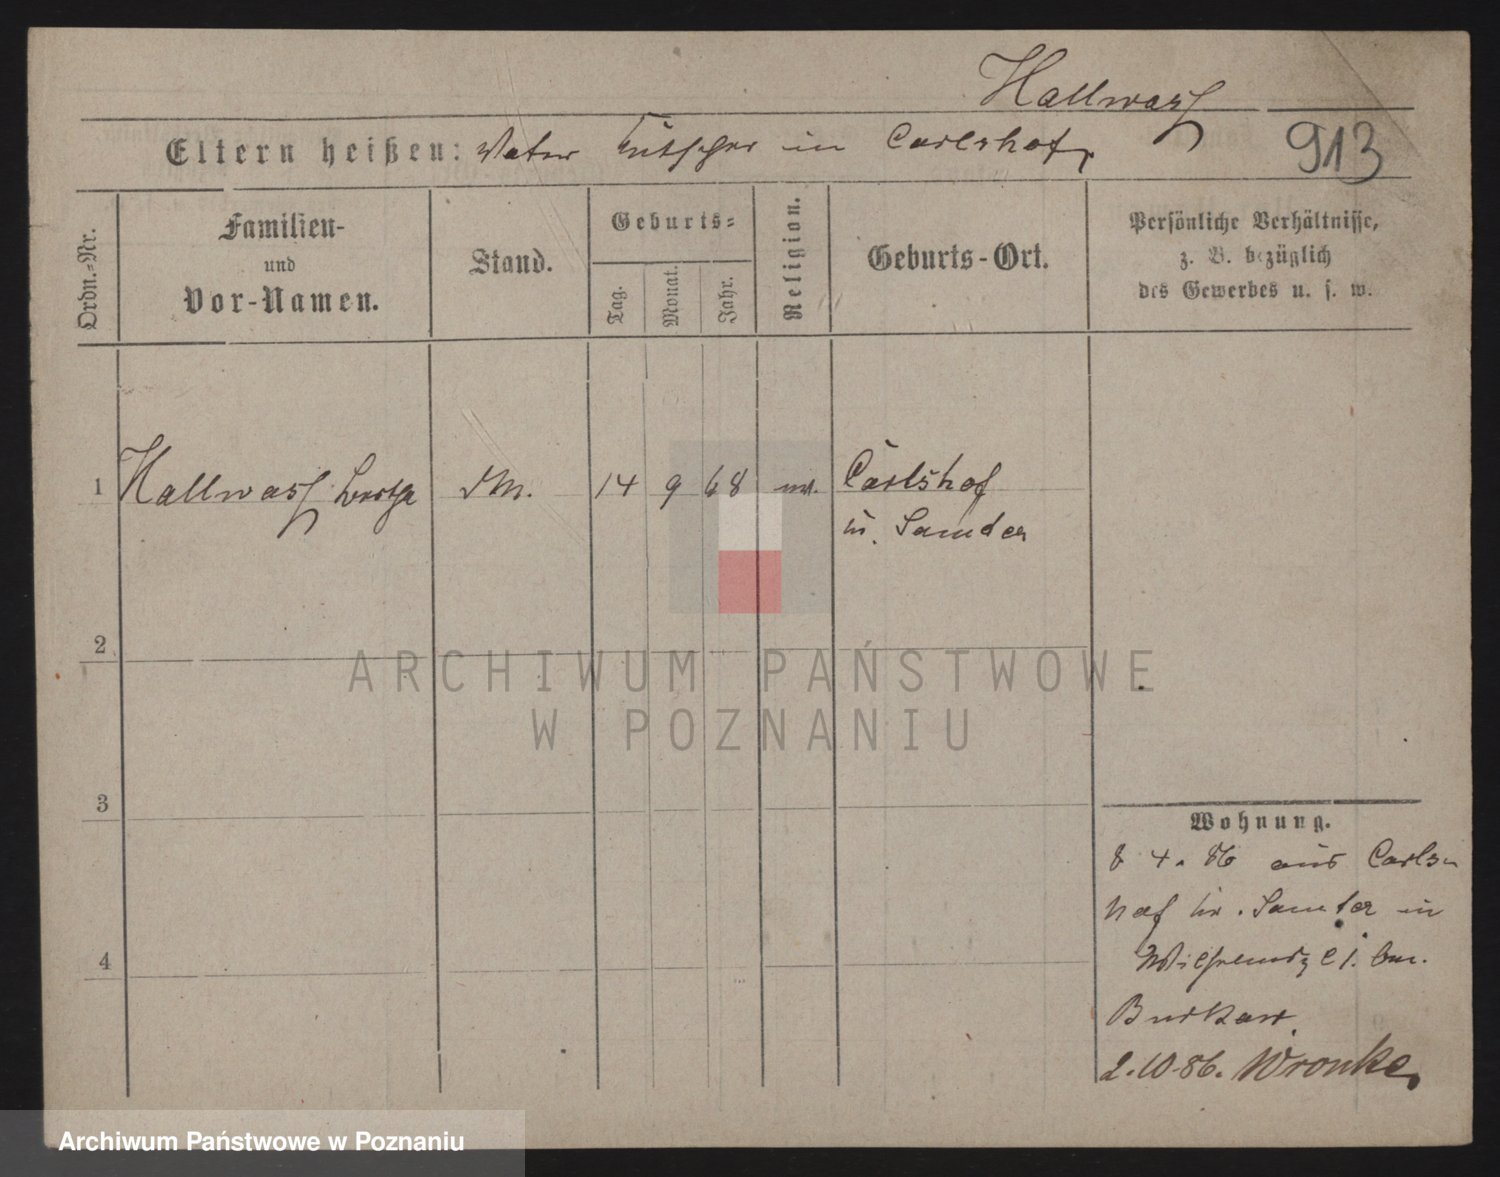 Hallwaß
Eltern heißen: Vater Kutscher in Carlshof,
913
Ordn.=Nr.
Familien-
und
Vor-Namen.
Stand.
Geburts=
Tag.
Monat.
Jahr.
Religion.
Geburts-Ort.
Persönliche Verhältnisse,
z. B. bezüglich
des Gewerbes u. s. w.
1 Hallwaß Bertha 14 9 68 Carlshof
Samter
2
ARCHIWUM PAŃSTWOWE
W POZNANIU
3
Wohnung.
8 4. 86 aus Carls-
hof Samter in
4
Burkart
2.10.86. Wronke,
Archiwum Państwowe w Poznaniu